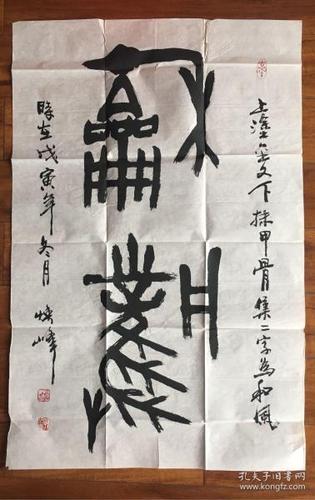 上金文下採甲骨集二字為和風
龢風
時在戊寅年冬月峰
孔夫子旧书网
www.kongfz.com